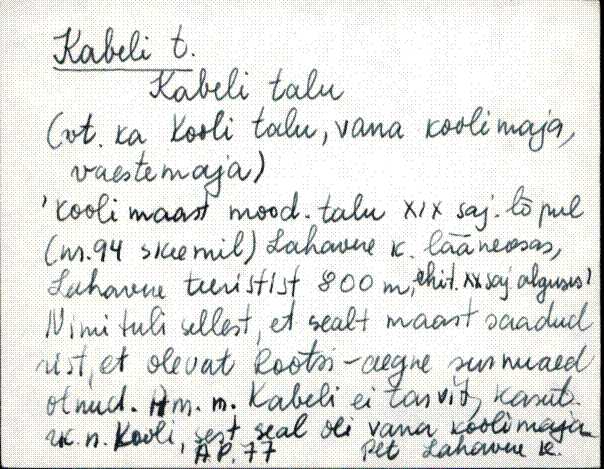 Kabeli t.
Kabeli talu
(vt. ka Kooli talu, vana koolimaja,
vaestemaja)
'Koolimaast mood. talu XIX saj. lõpul
(nr. 94 skeemil) Lahavere k. lääneosas,
Lahavere teeristist 800 m, ehit. XX saj alguses'
Nimi tuli sellest, et sealt maast saadud
rist, et olevat Rootsi-aegne surnuaed
olnud. Am. n. Kabeli ei tarvit, kasut.
rk. n. Kooli, sest seal oli vana koolimaja
A.P. 77 Plt Lahavere k.